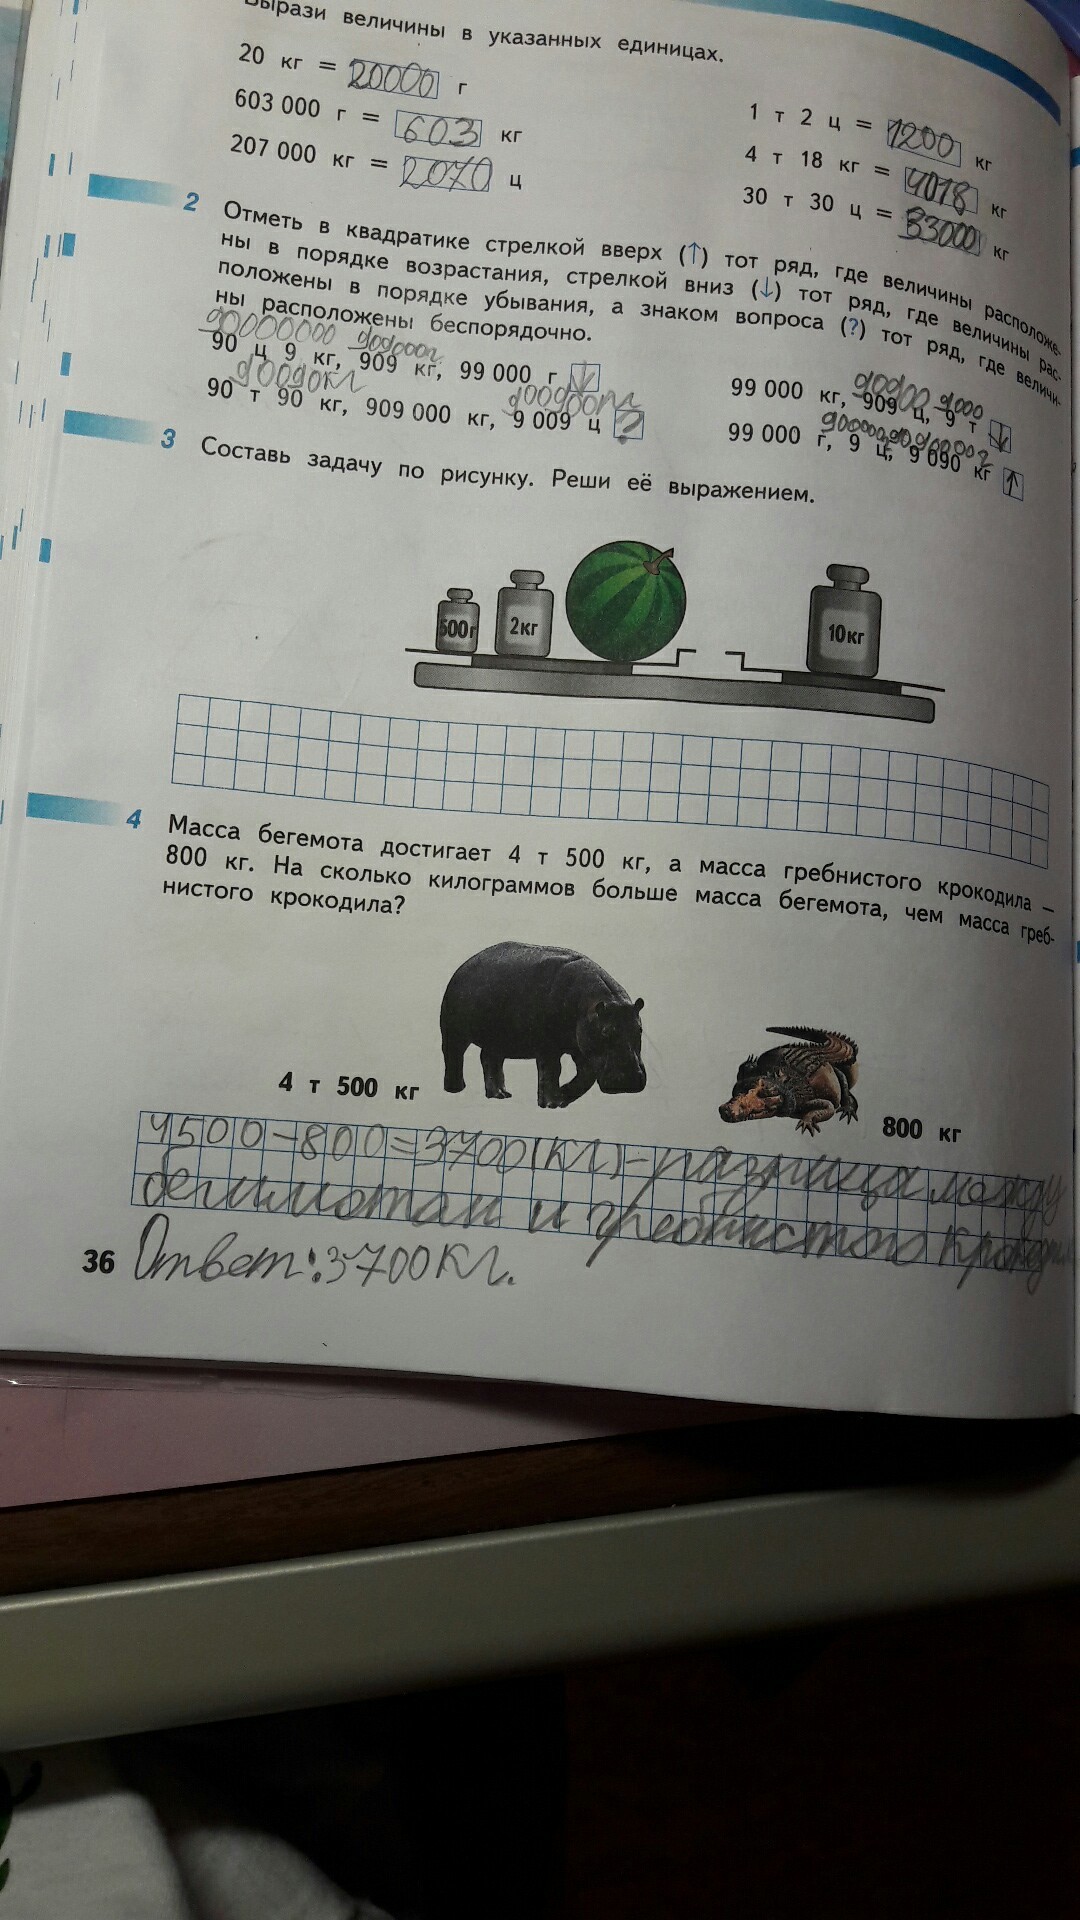 Вырази величины в указанных единицах.
20 кг = 20000 г
603 000 г = 603 кг
207 000 кг = 2070 ц
1 т 2 ц = 1200 кг
4 т 18 кг = 4018 кг
30 т 30 ц = 33000 кг
2 Отметь в квадратике стрелкой вверх (↑) тот ряд, где величины расположе-
ны в порядке возрастания, стрелкой вниз (↓) тот ряд, где величины рас-
положены в порядке убывания, а знаком вопроса (?) тот ряд, где величи-
ны расположены беспорядочно.
909000г
90 ц 9 кг, 909 кг, 99 000 г ↓
90090кг
90 т 90 кг, 909 000 кг, 9 009 ц ?
90900 9000
99 000 кг, 909 ц, 9 т ↓
99 000 г, 9 ц, 9 090 кг ↑
3 Составь задачу по рисунку. Реши её выражением.
500г 2кг 10кг
4 Масса бегемота достигает 4 т 500 кг, а масса гребнистого крокодила –
800 кг. На сколько килограммов больше масса бегемота, чем масса греб-
нистого крокодила?
4 т 500 кг
800 кг
4500-800=3700(кг)-разница между
бегимотам и гребнистого
Ответ: 3700кг.
36